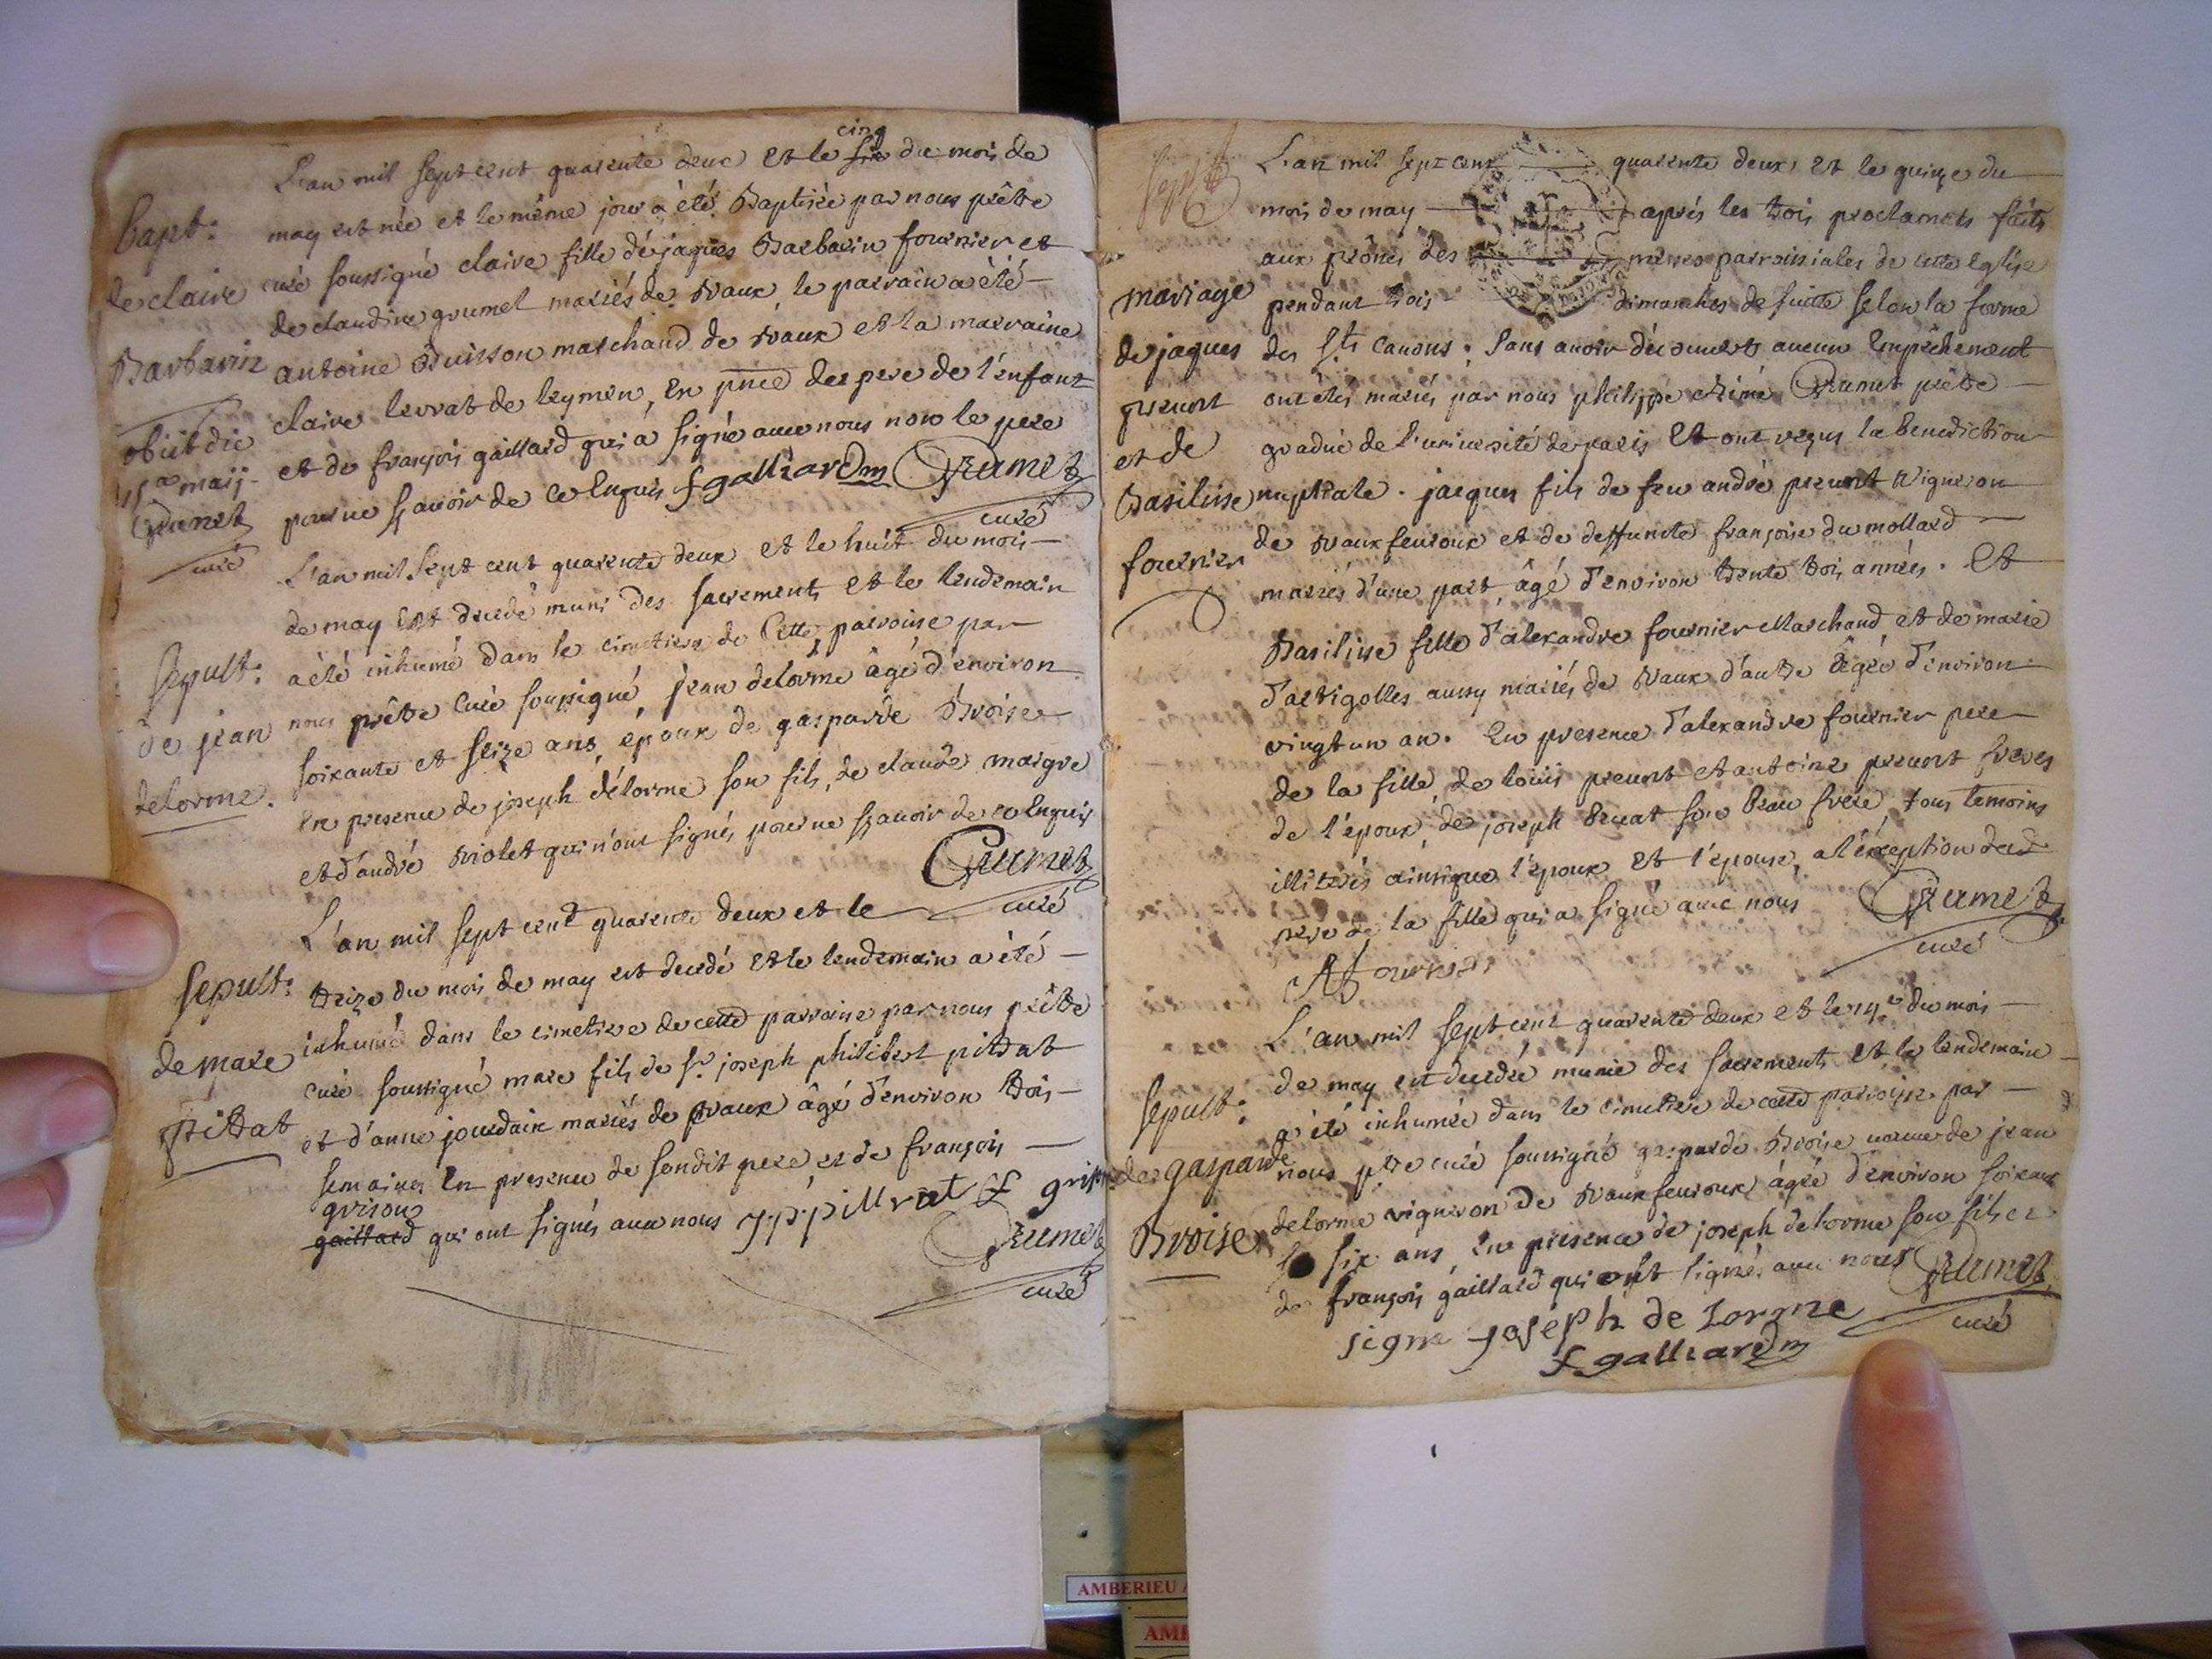 L'an mil sept cent quarente deux et le six cinq du mois de
may est née et le même jour a été Baptisée par nous prêtre
curé soussigné claire fille de jaques Barbarin fournier et
de claudine grumet mariés de vaux, le parrain a été
antoine Buisson marchand de vaux et la marraine
claire levrat de leymen, en pnce des pere de l'enfant
et de françois gaillard qui a signé avec nous non le pere
pour ne sçavoir de ce enquis f galliard Grumet
curé
bapt:
de claire
Barbarin
obiit die
15a maij
Grumet
curé
L'an mil sept cent quarente deux et le huit du mois
de may est decedé muni des sacrements et le lendemain
a été inhumé dans le cimetiere de cette parroisse par
nous prêtre curé soussigné, jean delorme âgé d'environ
soixante et seize ans, epoux de gasparde Broise
en presence de joseph délorme son fils, de claude maigre
et d'andré violet qui n'ont signés pour ne sçavoir de ce enquis
Grumet
curé
sepult:
de jean
delorme.
L'an mil sept cent quarente deux et le
treize du mois de may est decedé et le lendemain a été
inhumé dans le cimetiere de cette parroisse par nous prêtre
curé soussigné marc fils de sr. joseph philibert pittrat
et d'anne jourdain mariés de vaux âgé d'environ trois
semaines en presence de sondit pere et de françois
grison
gaillard qui ont signés avec nous j:p:pittrat f grison
Grumet
curé
sepult:
de marc
pittrat
sept
L'an mil sept cent quarente deux et le quinze du
mois de may après les trois proclamats faits
aux prônes des messes parroissiales de cette Eglise
pendant trois dimanches de suitte selon la forme
des Sts Canons, sans avoir découvert aucun Empêchement
ont étés mariés par nous philippe Aimé Grumet prêtre
gradué de l'université de paris et ont reçus la Benediction
nuptiale. jacques fils de feu andré prevost vigneron
de vaux fevroux et de deffuncte françoise du mollard
mariés d'une part, âgé d'environ trente trois années. Et
Basilisse fille d'alexandre fournier Marchand et de marie
d'artigolles aussy mariés de vaux d'autre âgée d'environ
vingt un an. En presence d'alexandre fournier pere
de la fille, de louis prevost et antoine prevost freres
de l'époux, de joseph son beau frere, tous temoins
illitérés ainsique l'époux et l'épouse, a l'éxception dud
pere de la fille qui a signé avec nous Grumet
curé
A fournier
mariage
de jaques
prevost
et de
Basilisse
fournier
L'an mil sept cent quarente deux et le 14e du mois
de may est decedée munie des sacrements et le lendemain
a été inhumée dans le cimetiere de cette parroisse par
nous ptre curé soussigné gasparde Broise veuve de jean
delorme vigneron de vaux fevroux, âgée d'environ soixante
six ans, en presence de joseph delorme son fils et
de françois gaillard qui ont signés avec nous Grumet
curé
signe joseph de Lorme
f galliard
sepult:
de gasparde
Broise
AMBERIEU
AMB